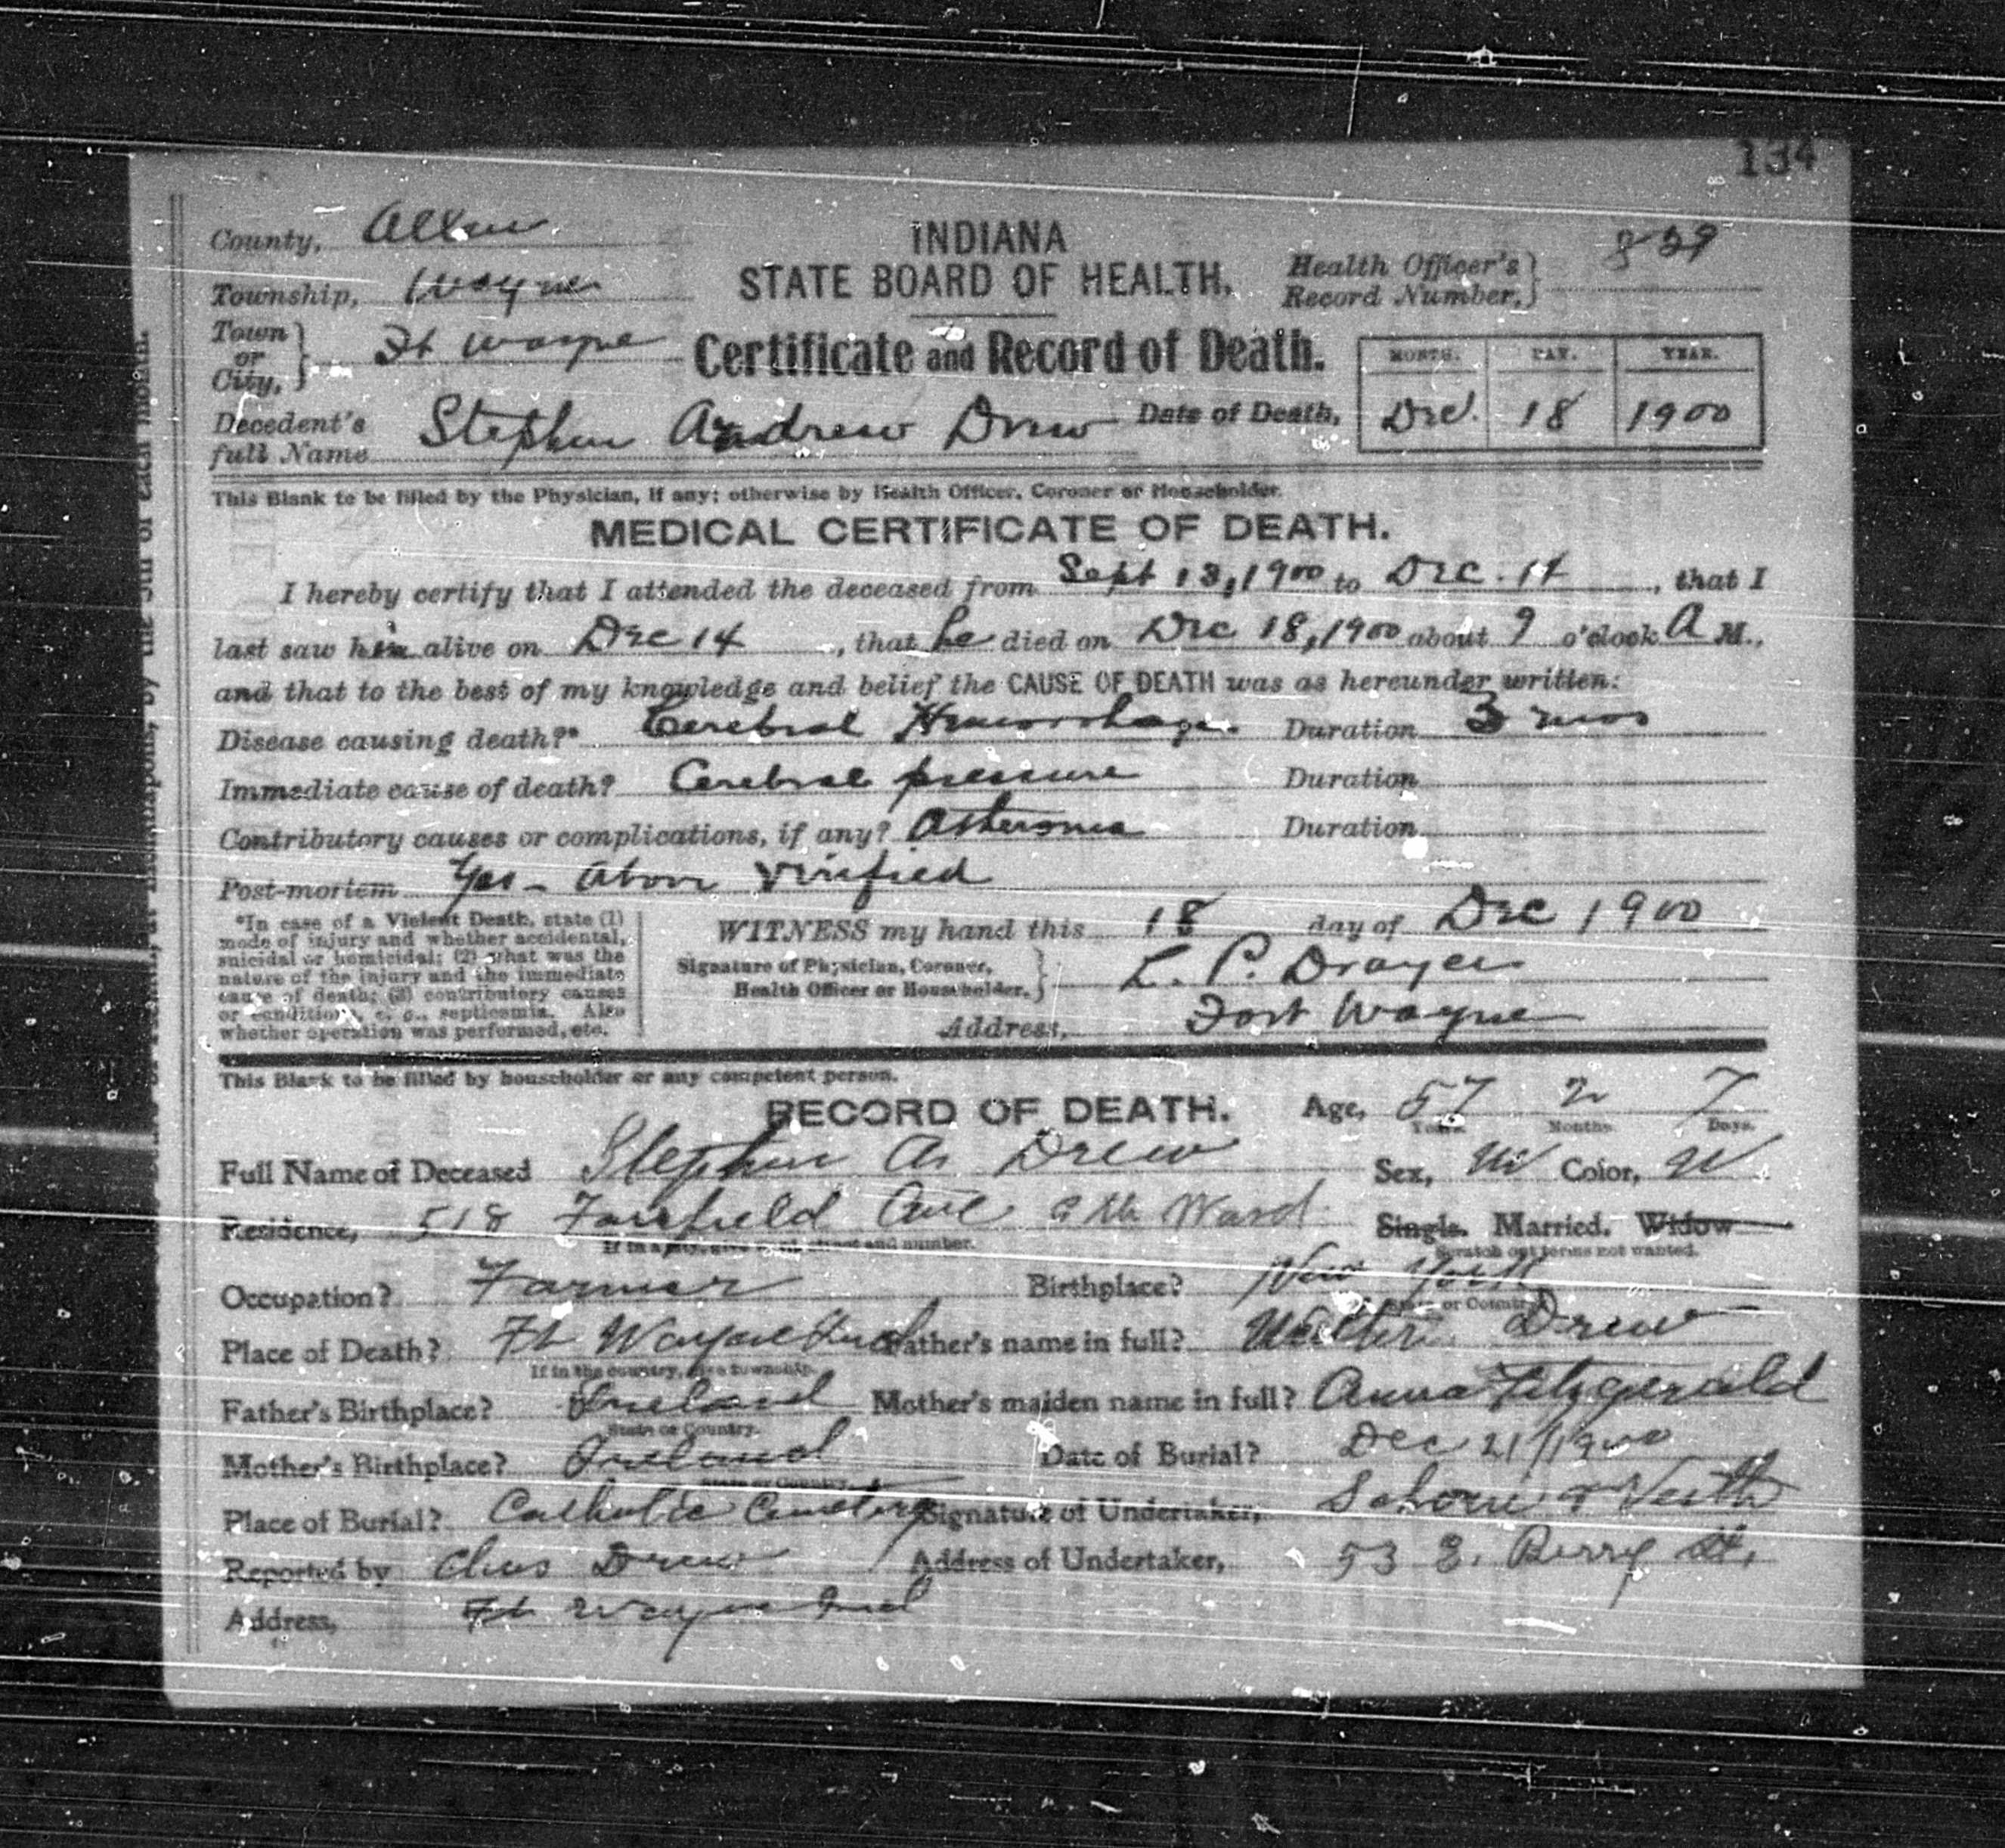 134
County, Allen
INDIANA
STATE BOARD OF HEALTH.
Health Officer's Record Number, 829
Township, Wayne
Town or City, Ft Wayne
Certificate and Record of Death.
MONTH. DAY. YEAR.
Decedent's full Name Stephen Andrew Drew Date of Death, Dec. 18 1900
This Blank to be filled by the Physician, if any; otherwise by Health Officer, Coroner or Householder.
MEDICAL CERTIFICATE OF DEATH.
I hereby certify that I attended the deceased from Sept 13, 1900 to Dec. 14, that I
last saw him alive on Dec 14, that he died on Dec 18, 1900 about 9 o'clock A M.,
and that to the best of my knowledge and belief the CAUSE OF DEATH was as hereunder written:
Disease causing death?* Cerebral Hemorrhage. Duration 3 mos
Immediate cause of death? Cerebral pressure Duration
Contributory causes or complications, if any? Atheroma Duration
Post-mortem Yes - above verified
*In case of a Violent Death, state (1)
mode of injury and whether accidental,
suicidal or homicidal; (2) what was the
nature of the injury and the immediate
cause of death; (3) contributory causes
or conditions, e. g., septicemia. Also
whether operation was performed, etc.
WITNESS my hand this 18 day of Dec 1900
Signature of Physician, Coroner, Health Officer or Householder, L. P. Drayer
Address, Fort Wayne
This Blank to be filled by householder or any competent person.
RECORD OF DEATH. Age, 57 2 7
Years. Months. Days.
Full Name of Deceased Stephen A. Drew Sex, M Color, W
Residence, 518 Fairfield Ave Ward Single. Married. Widow
If in a city, give ward, street and number. Scratch out terms not wanted.
Occupation? Farmer Birthplace? New York
State or Country
Place of Death? Ft Wayne Ind Father's name in full? Walter Drew
If in the country, give township.
Father's Birthplace? Ireland Mother's maiden name in full? Anna Fitzgerald
State or Country.
Mother's Birthplace? Ireland Date of Burial? Dec 21/1900
State or Country.
Place of Burial? Catholic Cemetery Signature of Undertaker, Schone & Veith
Reported by Chas Drew Address of Undertaker, 53 E. Berry St.
Address, Ft Wayne Ind